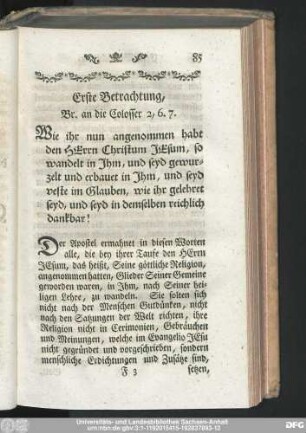 85
Erste Betrachtung,
Br. an die Colosser 2, 6. 7.
Wie ihr nun angenommen habt
den HErrn Christum JEsum, so
wandelt in Jhm, und seyd gewur-
zelt und erbauet in Jhm, und seyd
veste im Glauben, wie ihr gelehret
seyd, und seyd in demselben reichlich
dankbar!
Der Apostel ermahnet in diesen Worten
alle, die bey ihrer Taufe den HErrn
JEsum, das heißt, Seine göttliche Religion,
angenommen hatten, Glieder Seiner Gemeine
geworden waren, in Jhm, nach Seiner hei-
ligen Lehre, zu wandeln. Sie solten sich
nicht nach der Menschen Gutdünken, nicht
nach den Satzungen der Welt richten, ihre
Religion nicht in Cerimonien, Gebräuchen
und Meinungen, welche im Evangelio JEsu
nicht gegründet und vorgeschrieben, sondern
menschliche Erdichtungen und Zusätze sind,
F 3 setzen,
Universitäts- und Landesbibliothek Sachsen-Anhalt
urn:nbn:de:gbv:3:1-1192015415-182837693-12
DFG